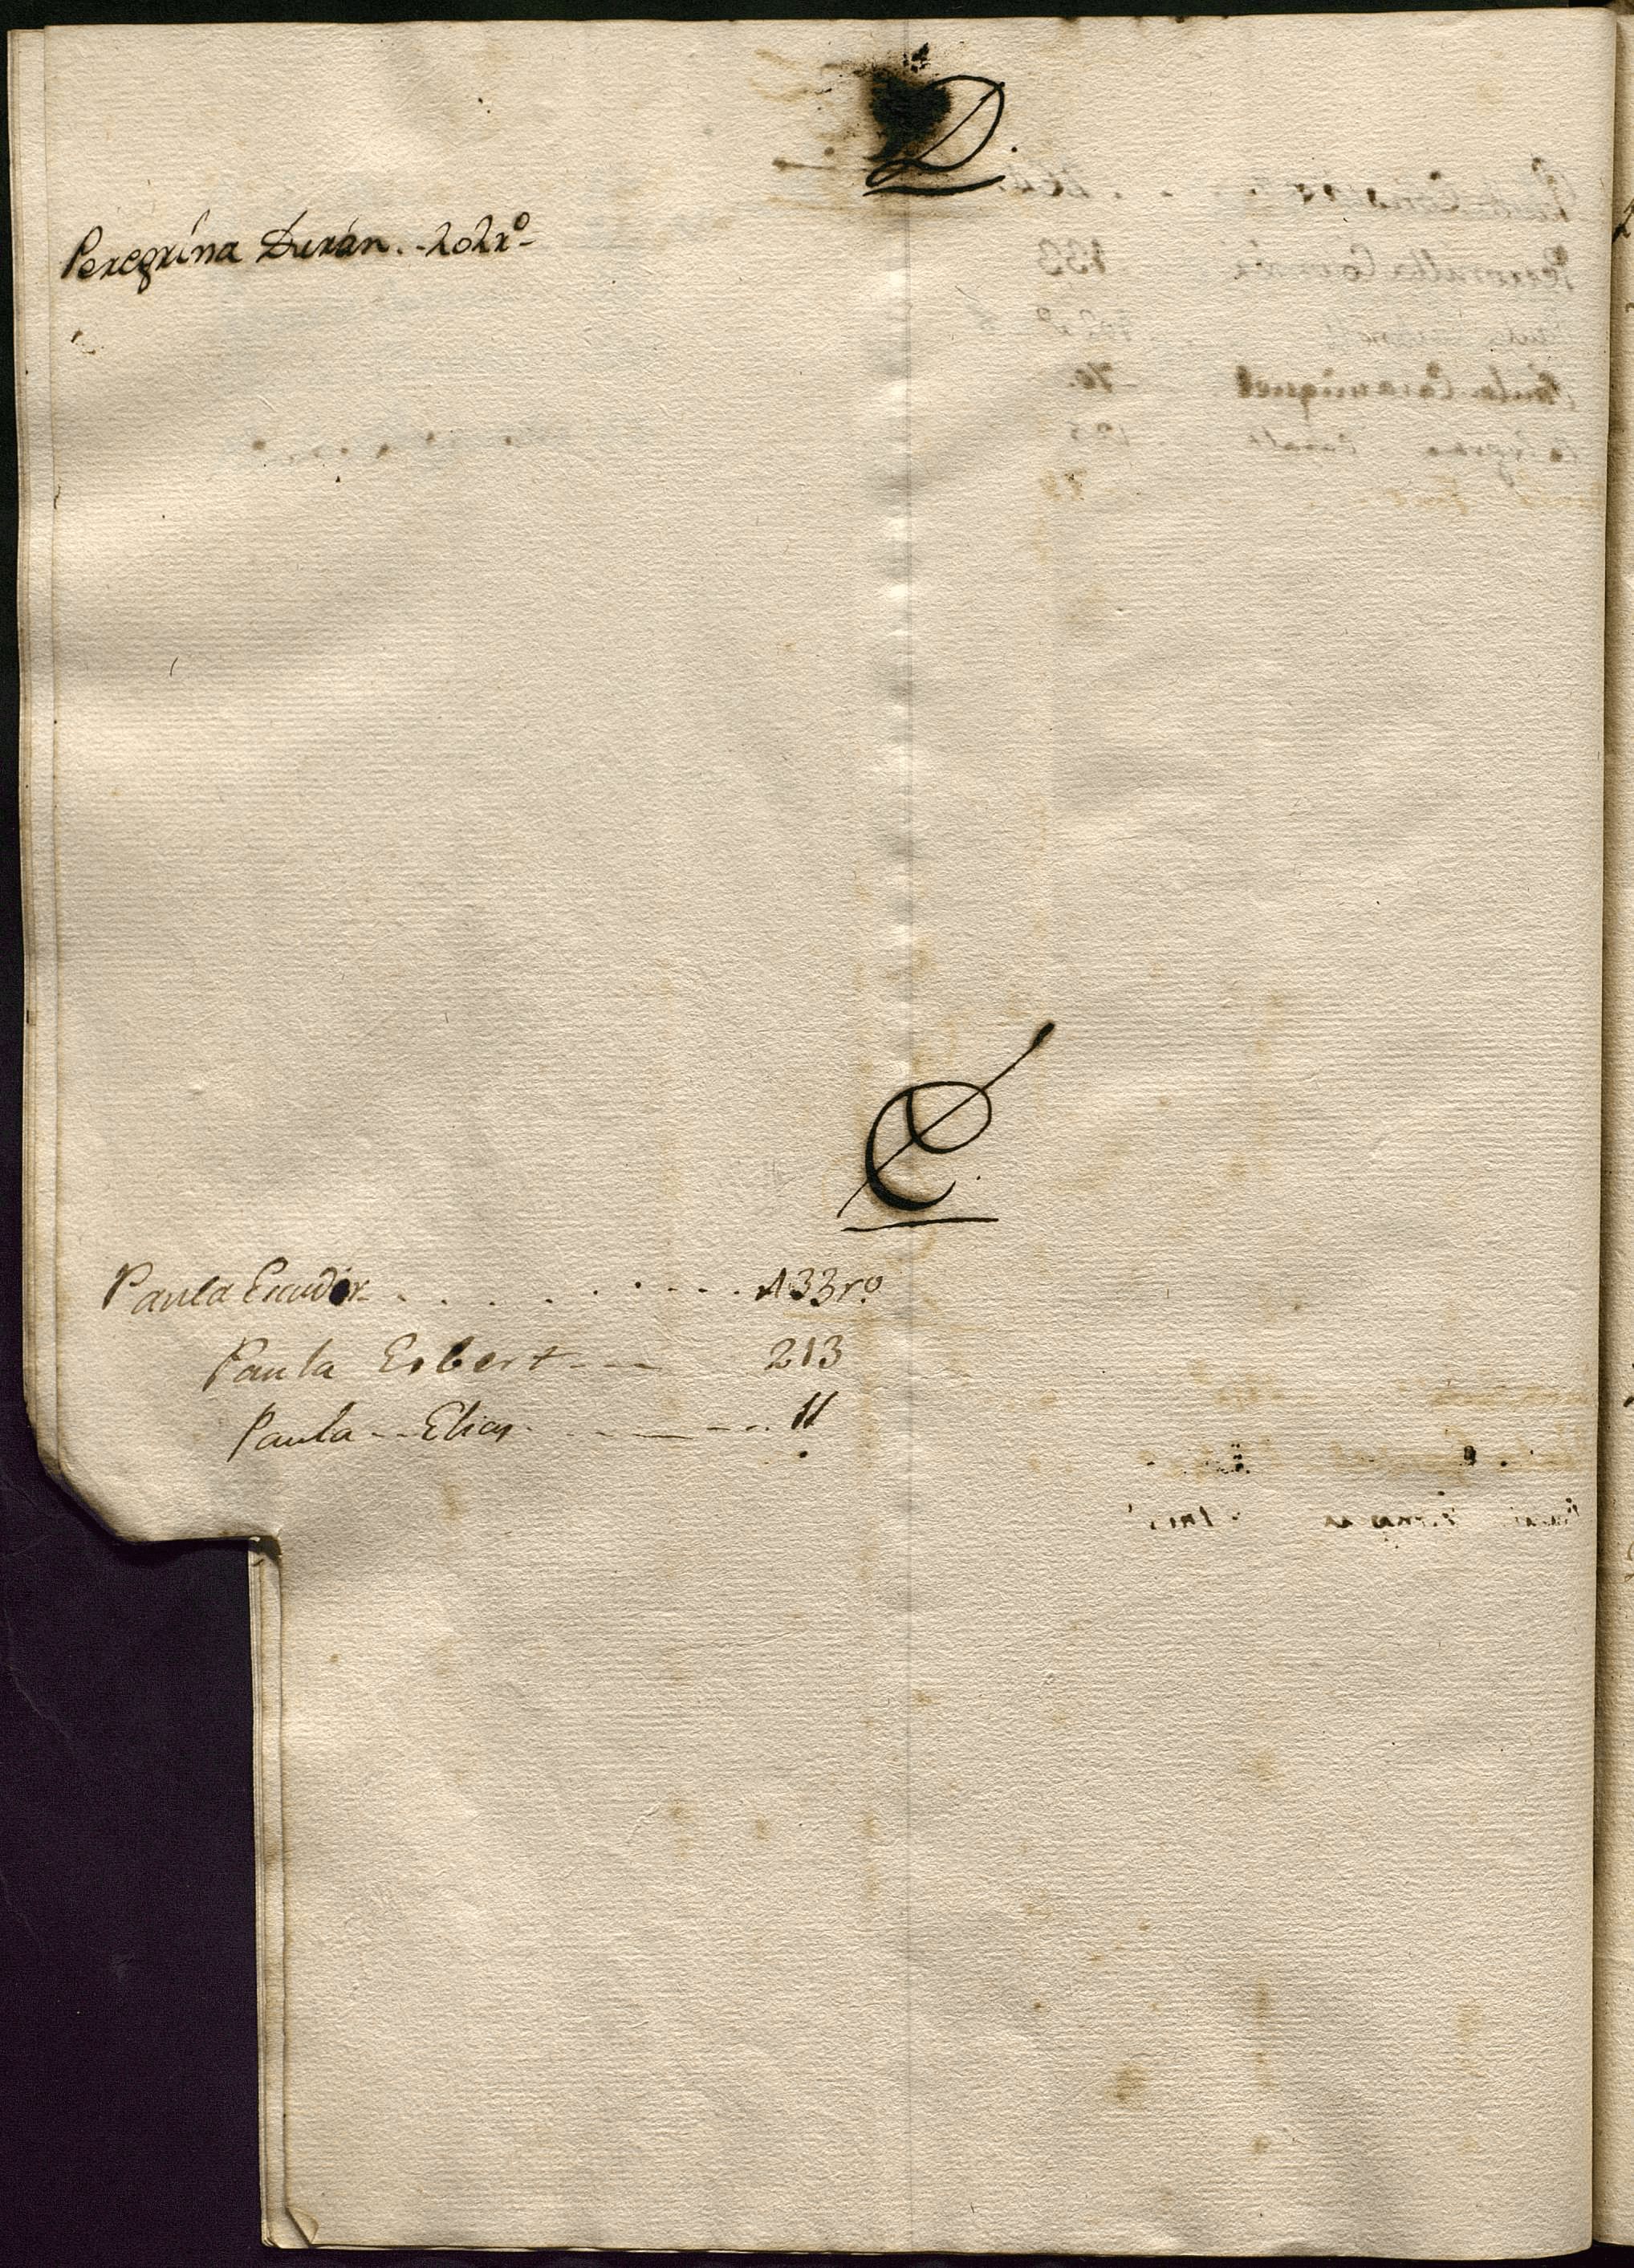 D.
Peregrina Durán. - 202 rº -
E.
Paula Escudér . . . . . . . . . 133 rº
Paula Esbert - - - 213
Paula - - Elias - - - - - - 11